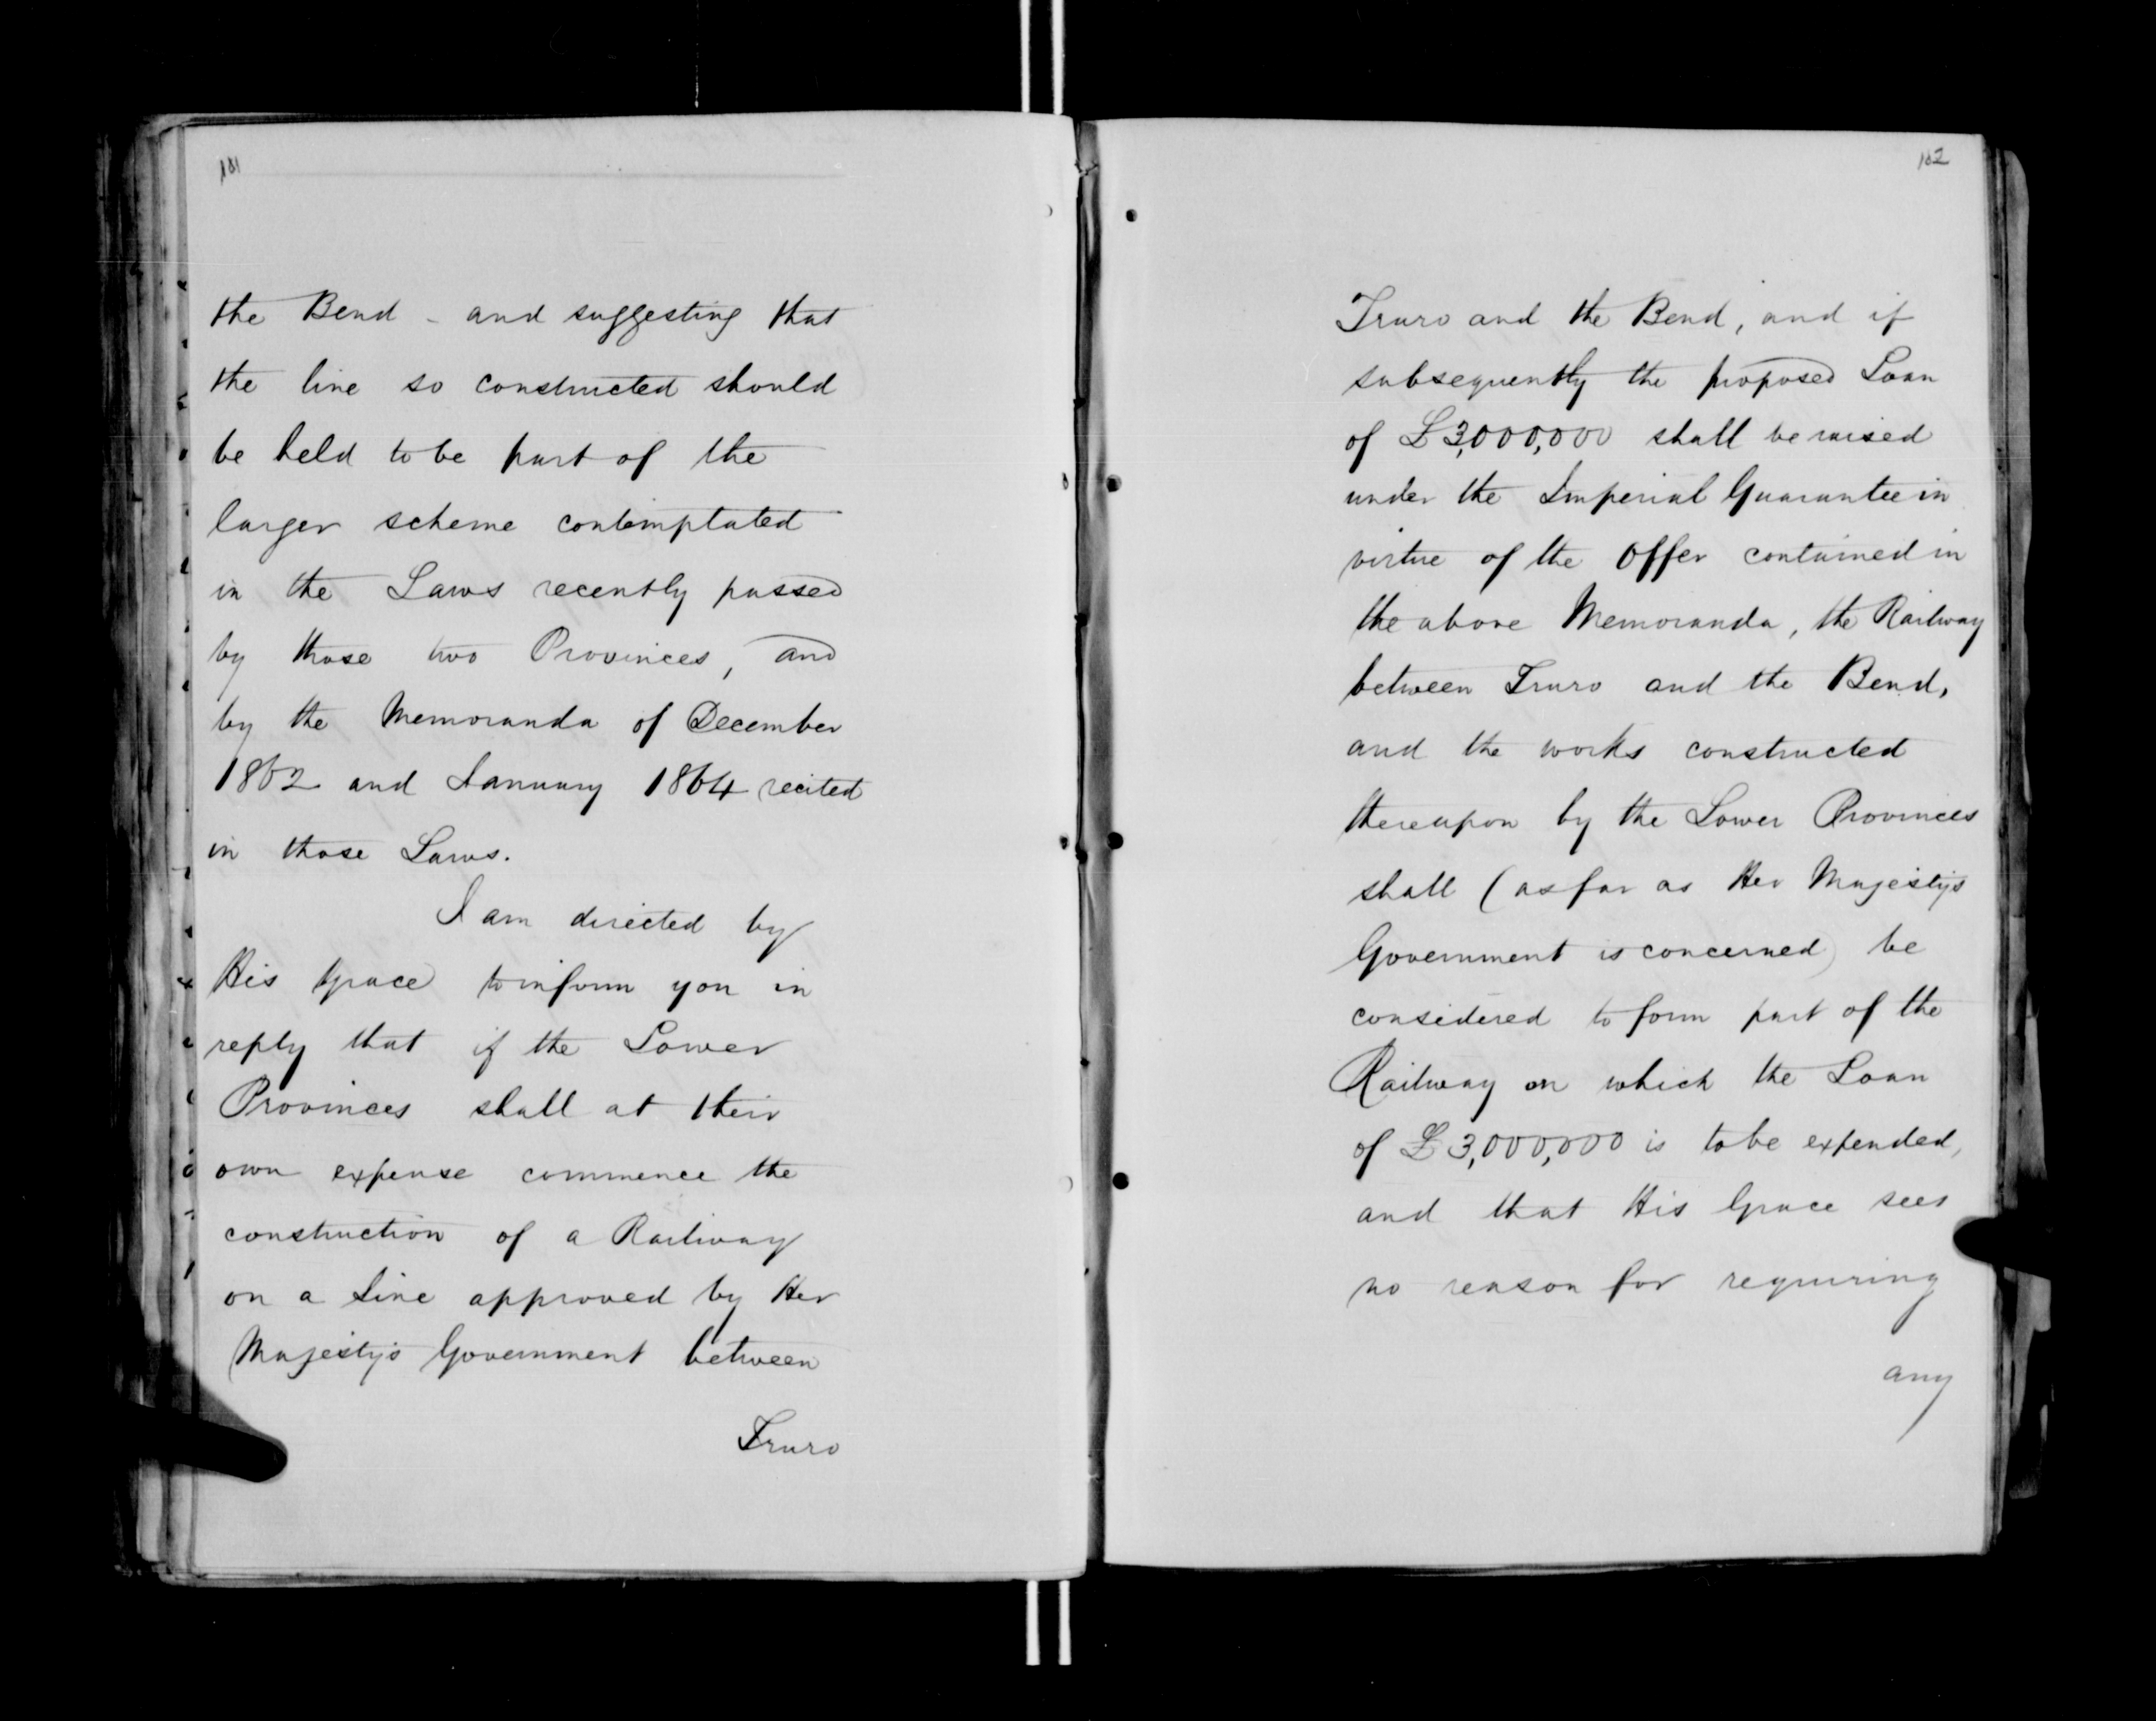 181
the Bend - and suggesting that
the line so constructed should
be held to be part of the
larger scheme contemplated
in the Laws recently passed
by those two Provinces, and
by the Memoranda of December
1862 and January 1864 recited
in those Laws.
I am directed by
His Grace to inform you in
reply that if the Lower
Provinces shall at their
own expense commence the
construction of a Railway
on a Line approved by Her
Majesty's Government between
Truro
182
Truro and the Bend, and if
subsequently the proposed Loan
of £3,000,000 shall be raised
under the Imperial Guarantee in
virtue of the Offer contained in
the above Memoranda, the Railway
between Truro and the Bend,
and the works constructed
thereupon by the Lower Provinces
shall (as far as Her Majesty's
Government is concerned) be
considered to form part of the
Railway on which the Loan
of £3,000,000 is to be expended,
and that His Grace sees
no reason for requiring
any